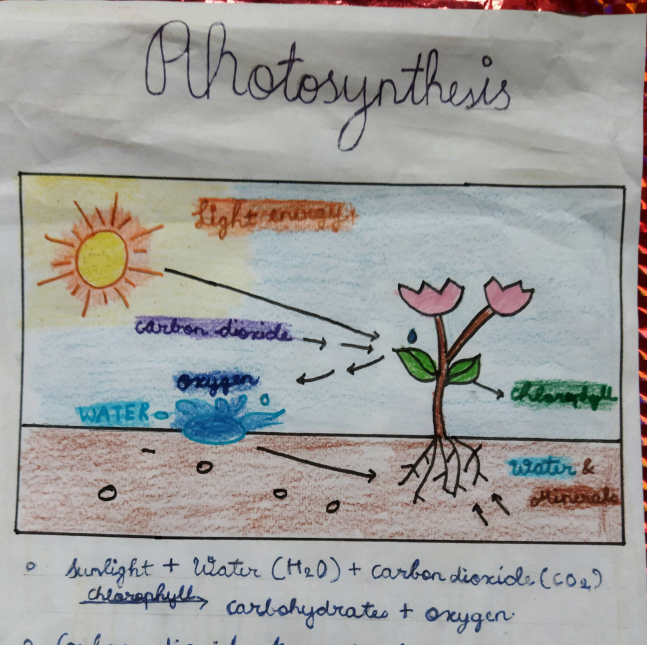 Photosynthesis
light energy
carbon dioxide
oxygen
WATER
chlorophyll
Water &
Minerals
Sunlight + Water (H2O) + carbon dioxide (CO2)
chlorophyll
carbohydrates + oxygen.